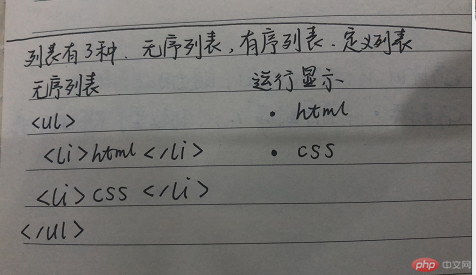 列表有3种. 无序列表, 有序列表. 定义列表
无序列表 运行显示
<ul> • html
<li>html</li> • css
<li>css </li>
</ul>
php 中文网